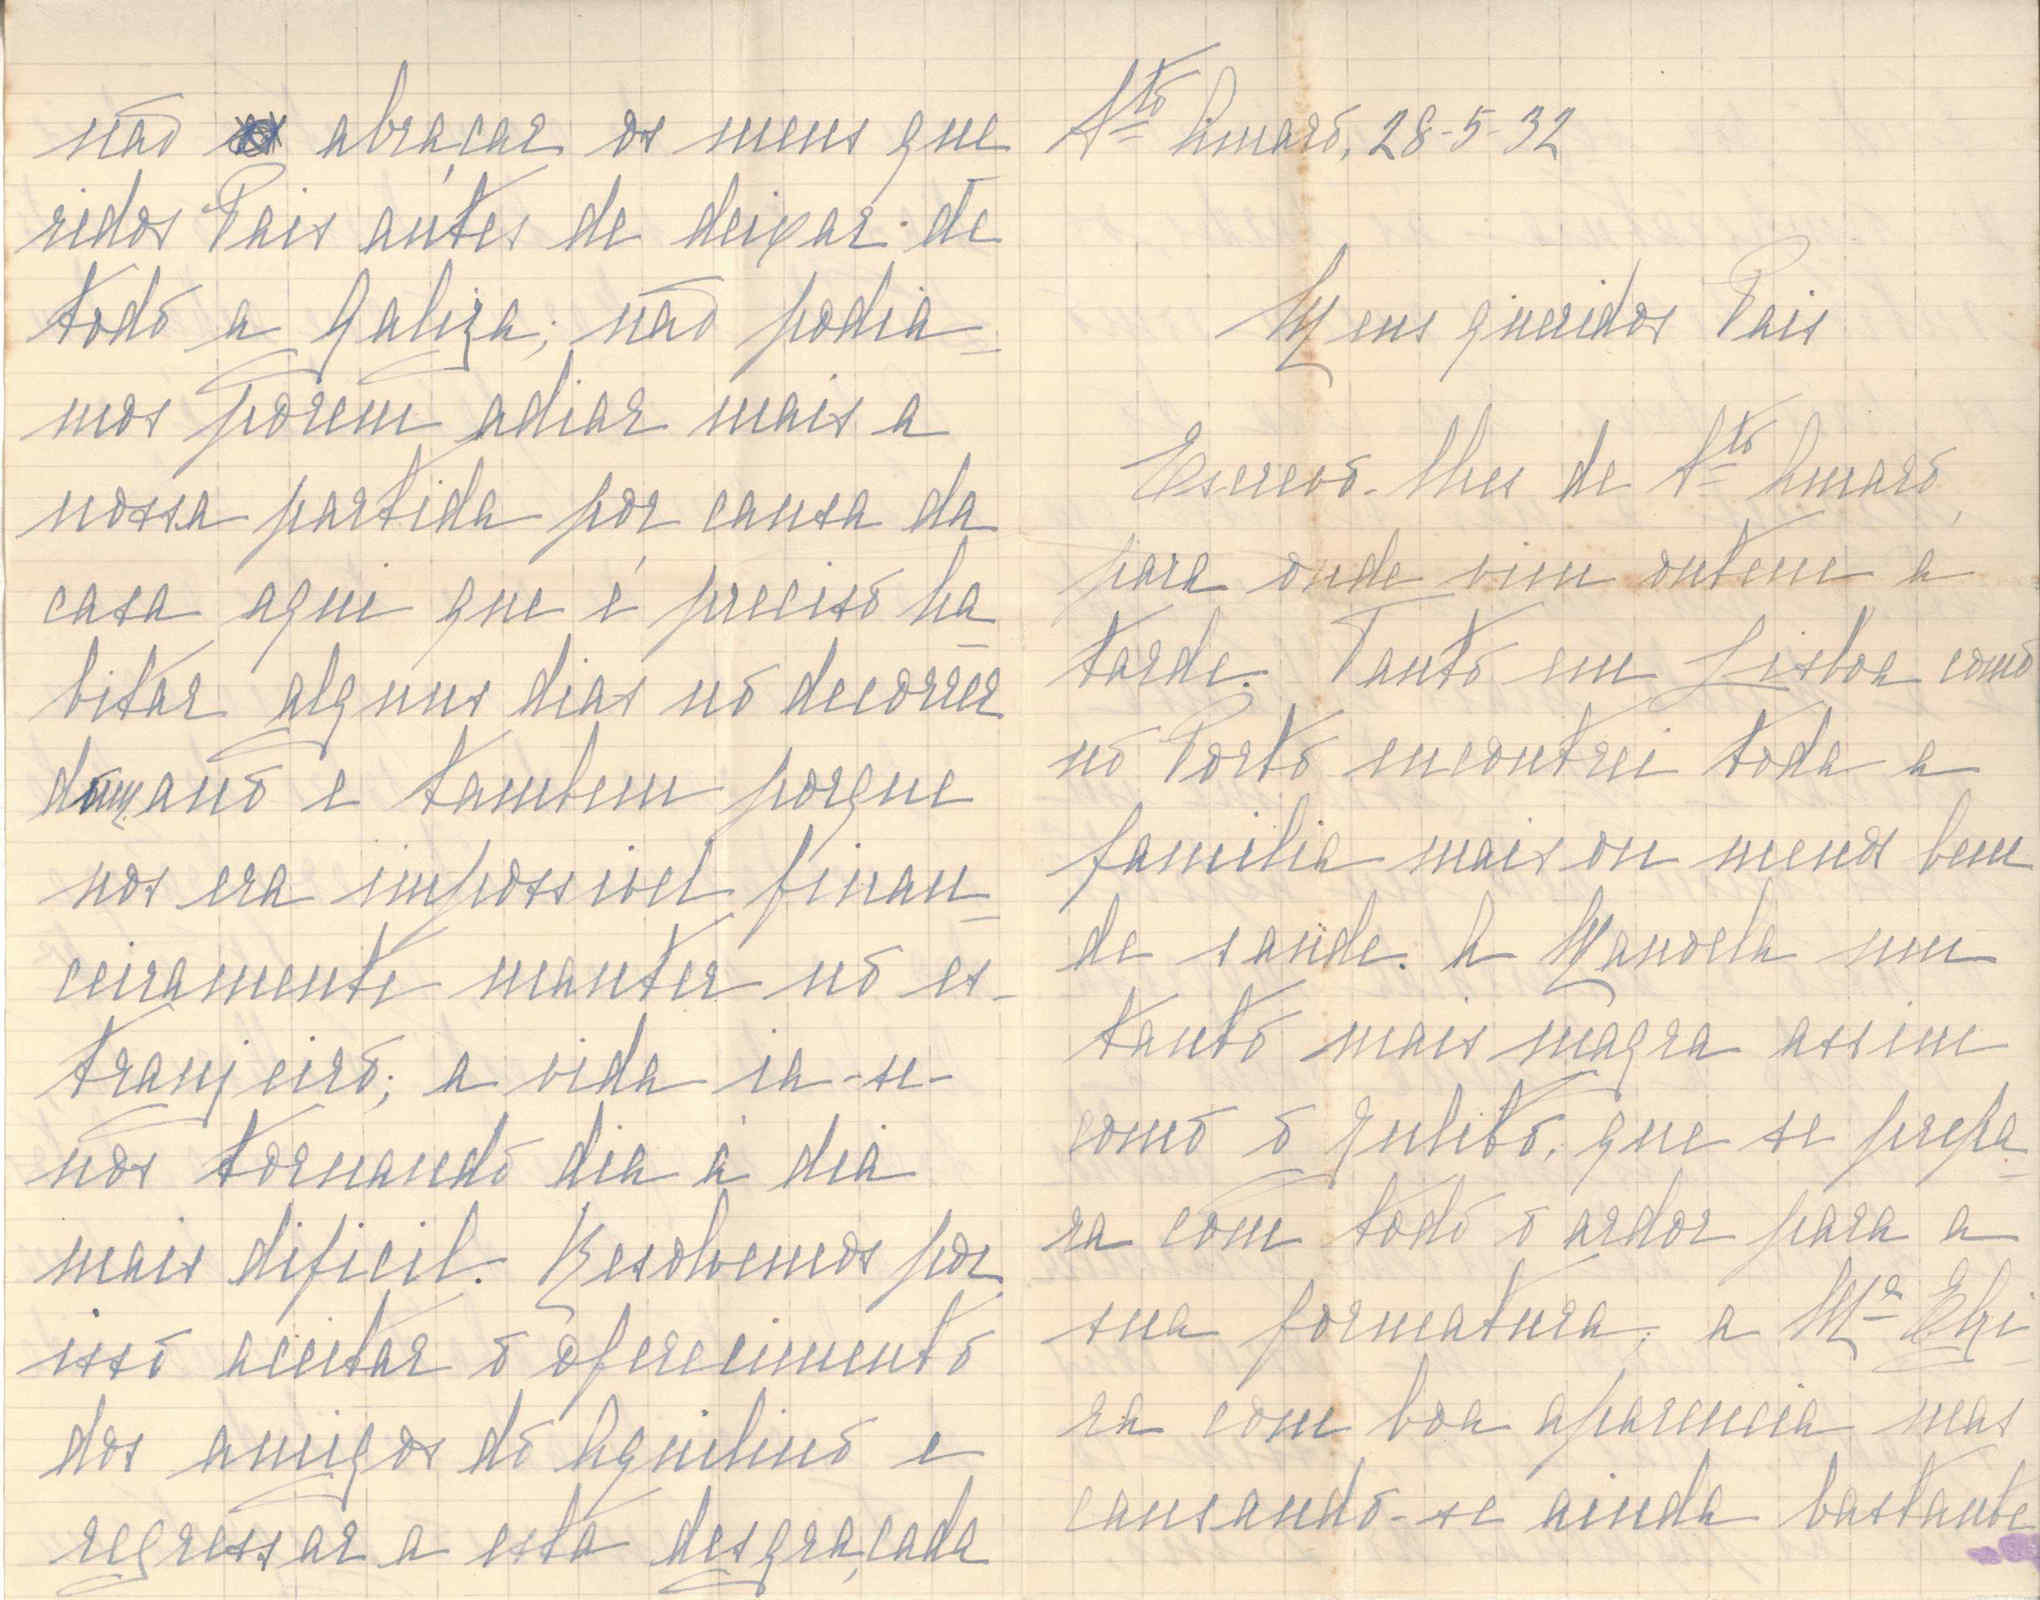 Sto Amaro, 28-5-32
Meus queridos Pais
Escrevo-lhes de Sto Amaro,
para onde vim ontem á
tarde. Tanto em Lisboa como
no Porto encontrei toda a
familia mais ou menos bem
de saude. A Manoela um
tanto mais magra assim
como o Julito, que se prepa-
ra com todo o ardor para a
sua formatura; a Ma Elzi-
ra com boa aparencia mas
cansando-se ainda bastante
não abraçar os meus que
ridos Pais antes de deixar de
todo a Galiza; não podia-
mos porem adiar mais a
nossa partida por causa da
casa aqui que é preciso ha-
bitar alguns dias no decorrer
dum ano e tambem porque
nos era impossivel finan-
ceiramente manter no es-
tranjeiro; a vida ia-se-
nos tornando dia a dia
mais dificil. Resolvemos por
isso aceitar o oferecimento
dos amigos do Aquilino e
regressar a esta desgraçada